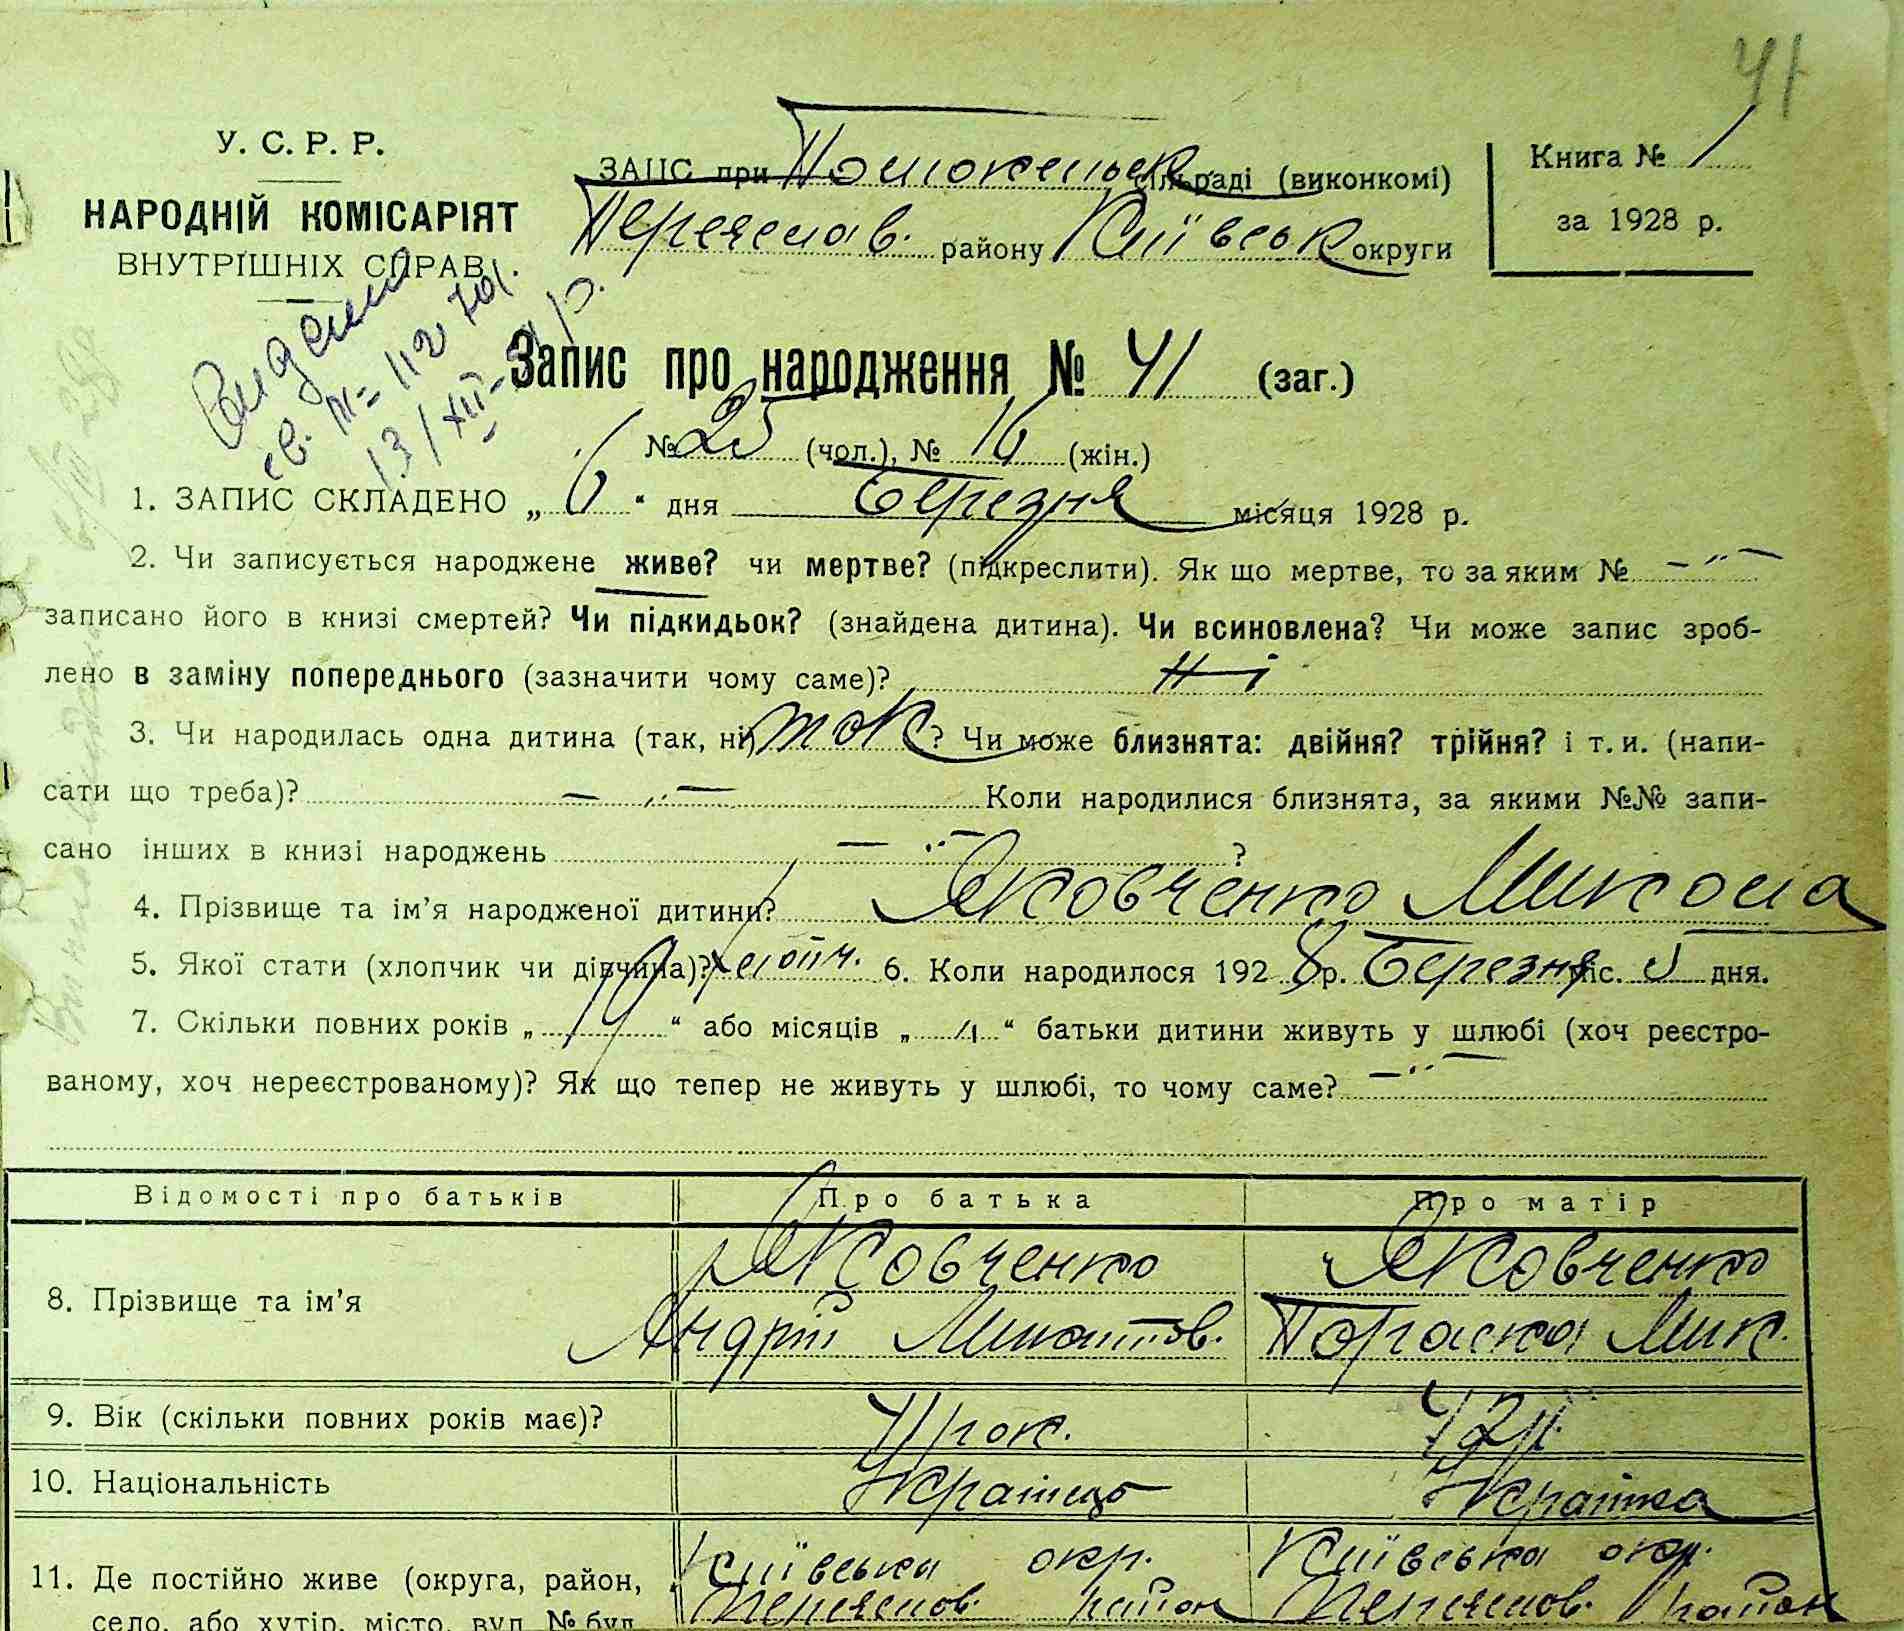 41
У. С. Р. Р.
НАРОДНІЙ КОМІСАРІЯТ
ВНУТРІШНІХ СПРАВ
ЗАПС при сільраді (виконкомі)
Переяслав. району Київськ округи
Книга № 1
за 1928 р.
Запис про народження № 41 (заг.)
№ 25 (чол.), № 16 (жін.)
1. ЗАПИС СКЛАДЕНО „ 6 “ дня Березня місяця 1928 р.
2. Чи записується народжене живе? чи мертве? (підкреслити). Як що мертве, то за яким № – " –
записано його в книзі смертей? Чи підкидьок? (знайдена дитина). Чи всиновлена? Чи може запис зроб-
лено в заміну попереднього (зазначити чому саме)? Ні
3. Чи народилась одна дитина (так, ні) так ? Чи може близнята: двійня? трійня? і т. и. (напи-
сати що треба)? – " – Коли народилися близнята, за якими №№ запи-
сано інших в книзі народжень – " – ?
4. Прізвище та ім’я народженої дитини? Яковченко Микола
5. Якої стати (хлопчик чи дівчина)? хлопч. 6. Коли народилося 1928 р. Березня міс. 5 дня.
7. Скільки повних років „ 19 “ або місяців „ “ батьки дитини живуть у шлюбі (хоч реєстро-
ваному, хоч нереєстрованому)? Як що тепер не живуть у шлюбі, то чому саме? – " –
Відомості про батьків Про батька Про матір
8. Прізвище та ім’я Яковченко Яковченко
Андрій Параска Мик.
9. Вік (скільки повних років має)? 41 рок. 42 р.
10. Національність Українець Українка
11. Де постійно живе (округа, район, Київська окр. Київська окр.
село, або хутір, місто, вул. № буд. Переяслов. район Переяслов. район
Видано
св. № 112
13/XII